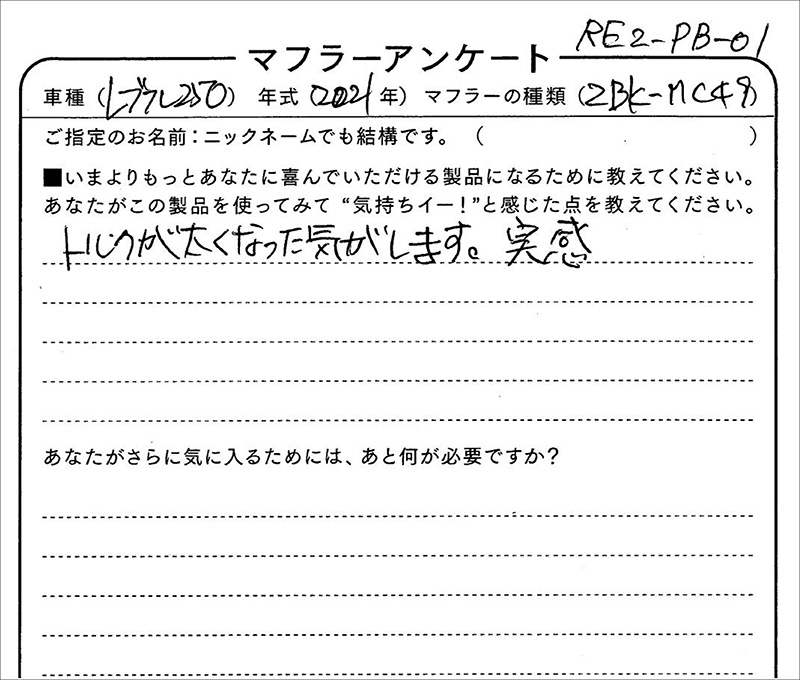 RE2-PB-01
マフラーアンケート
車種(レブル250) 年式(2021年) マフラーの種類(2BK-MC49)
ご指定のお名前：ニックネームでも結構です。( )
■いまよりもっとあなたに喜んでいただける製品になるために教えてください。
あなたがこの製品を使ってみて“気持ちイー！”と感じた点を教えてください。
トルクが太くなった気がします。実感
あなたがさらに気に入るためには、あと何が必要ですか？